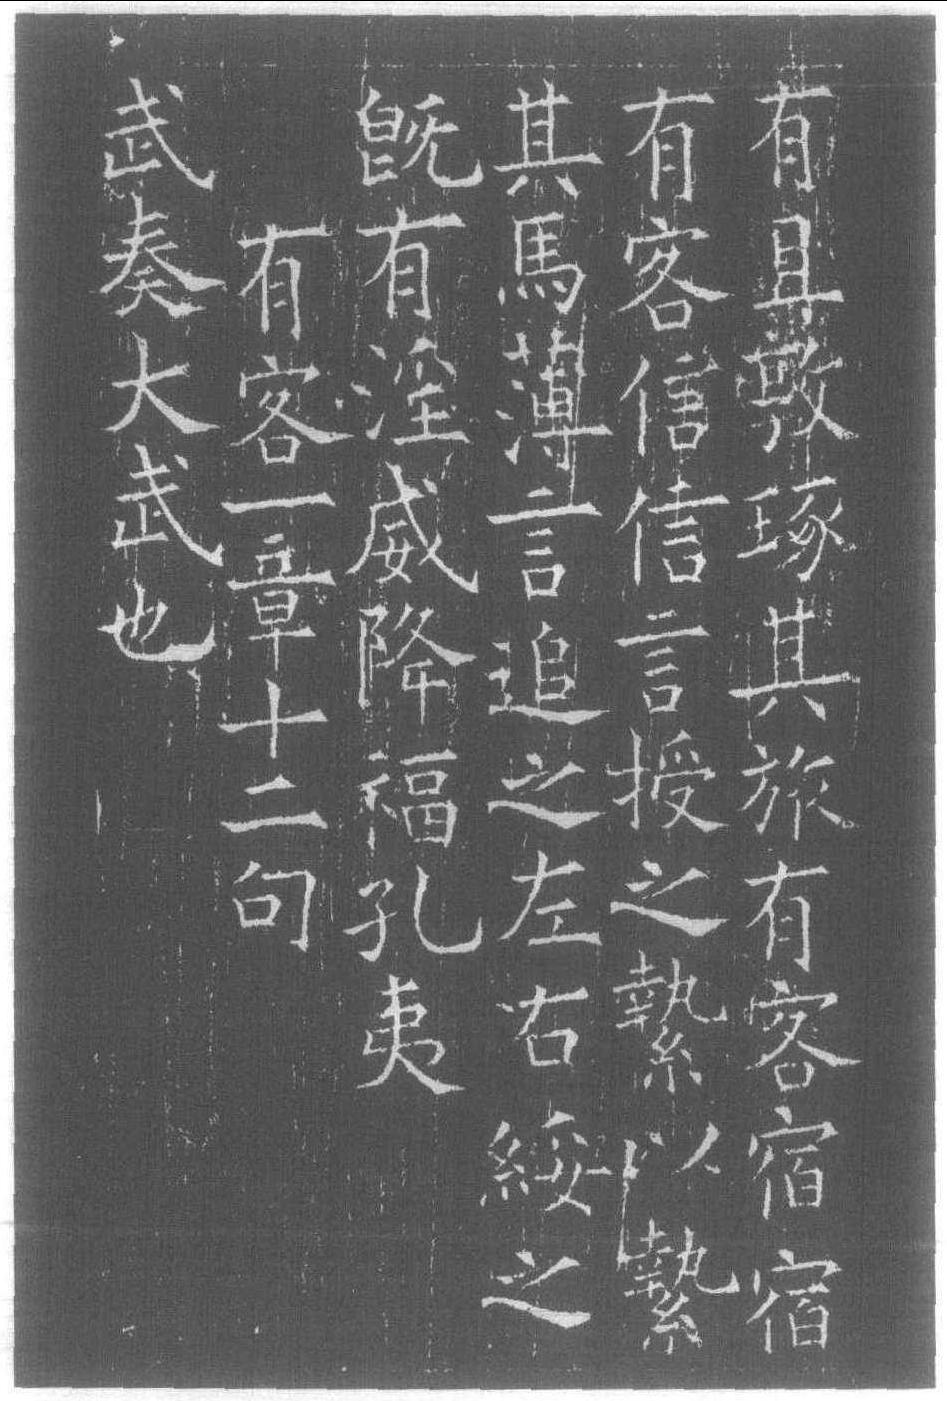 有且敦琢其旅有客宿宿
有客信信言授之縶以縶
其馬薄言追之左右綏之
既有淫威降福孔夷
有客一章十二句
武奏大武也